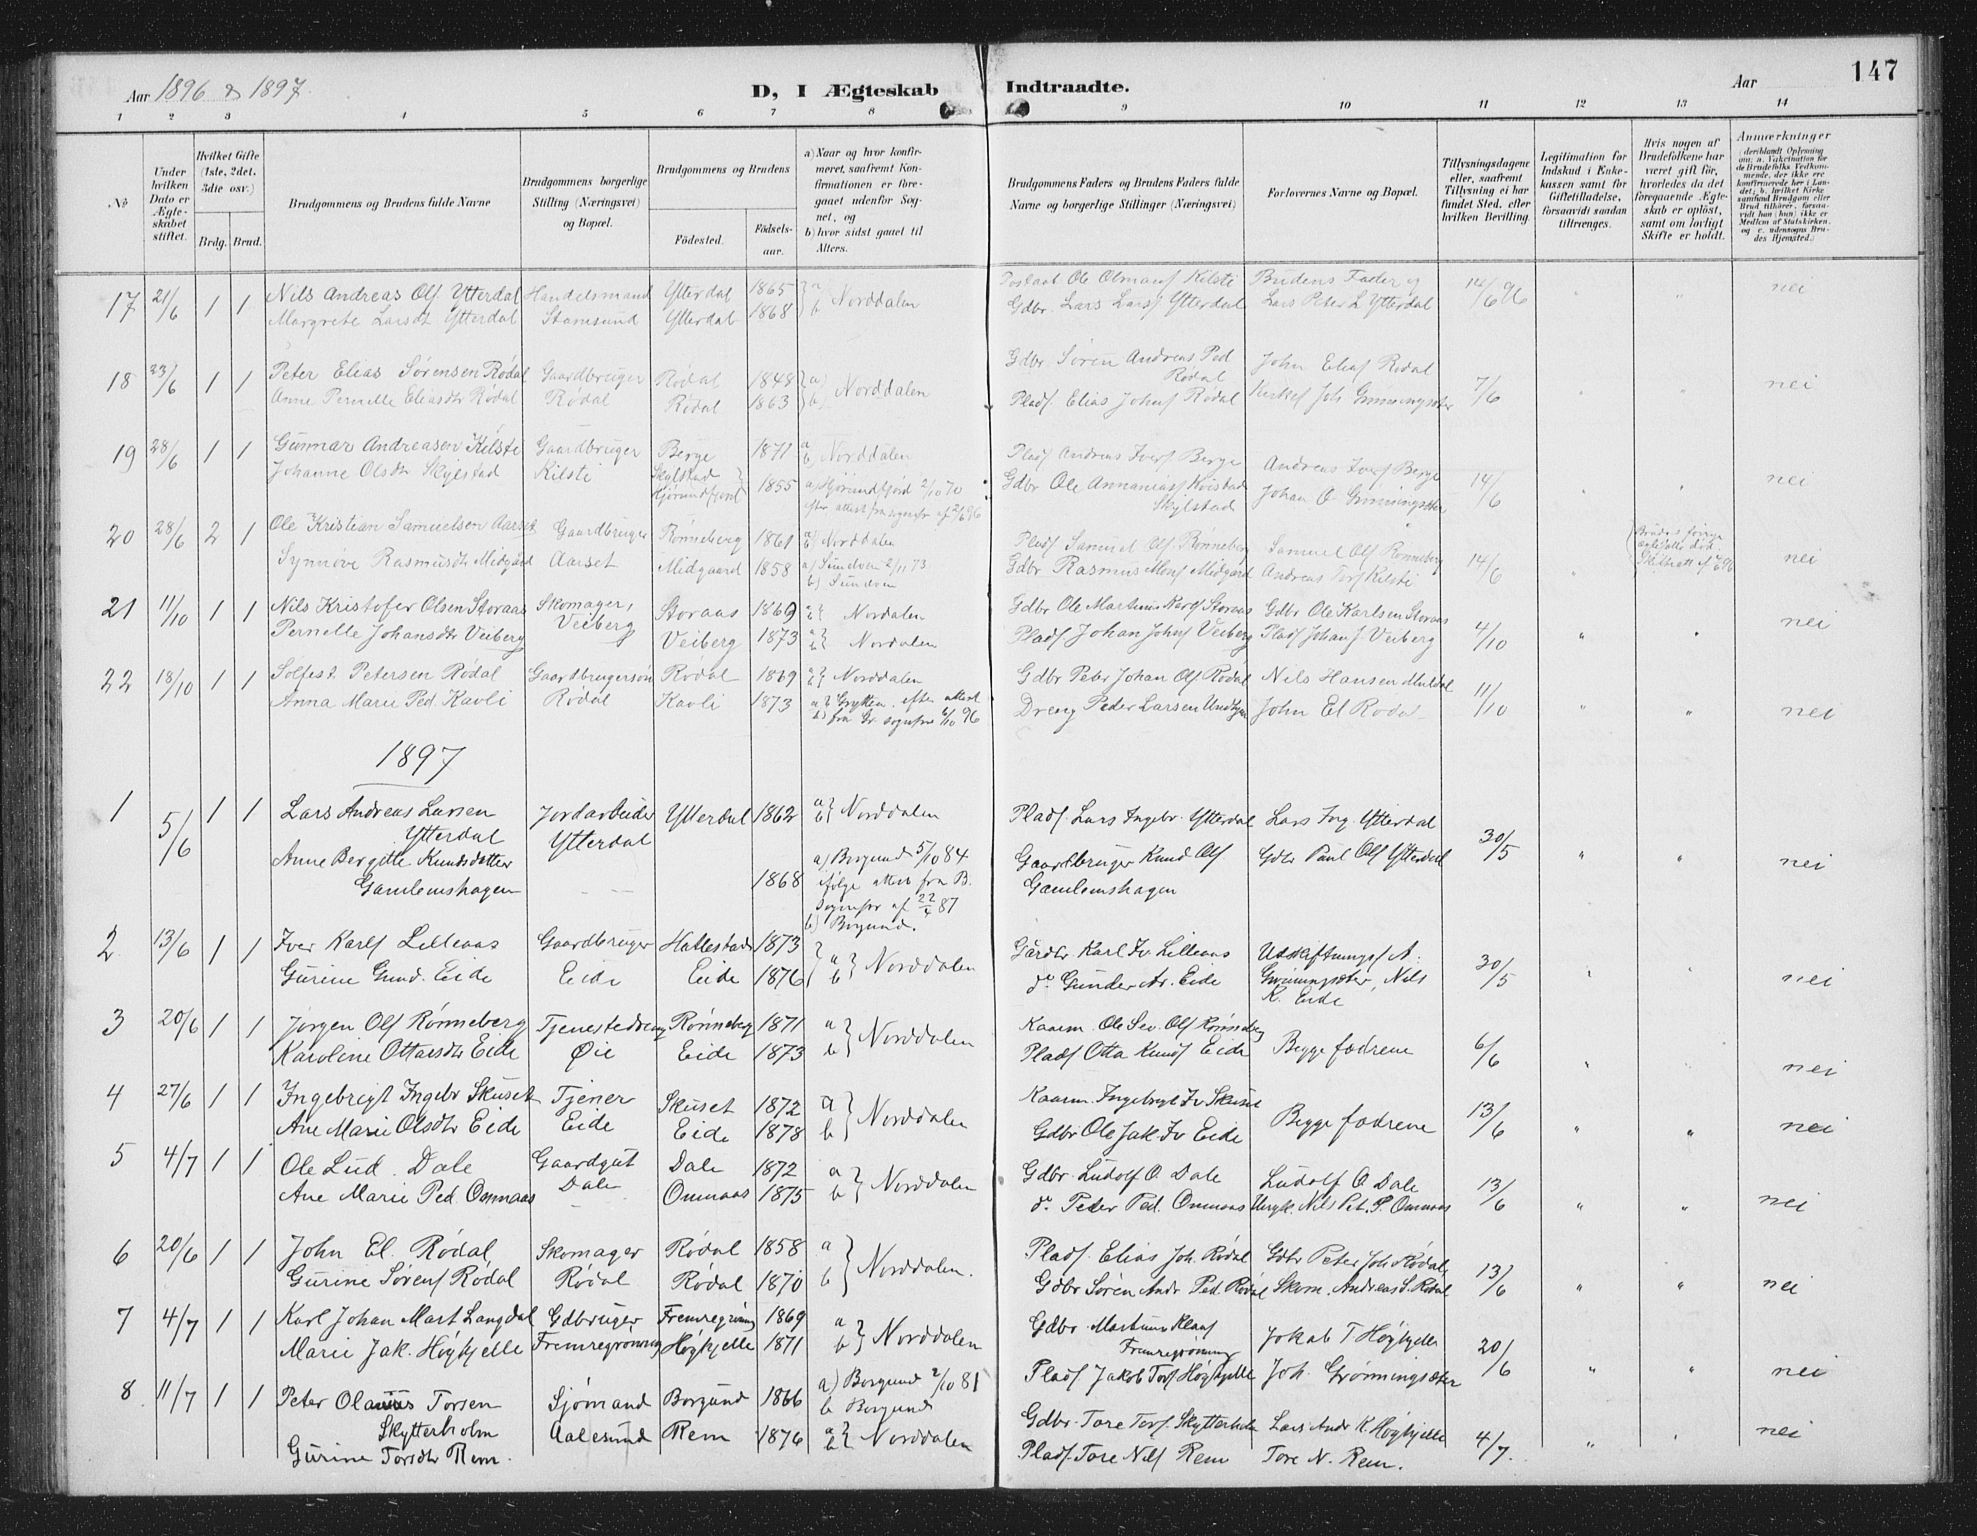 Aar 1896 & 1897.
D, I Ægteskab Indtraadte.
Aar 147
1 2 3 4 5 6 7 8 9 10 11 12 13 14
No
Under hvilken Dato er Ægteskabet stiftet.
Hvilket Gifte (1ste, 2det, 3die osv.)
Brdg. Brud.
Brudgommens og Brudens fulde Navne
Brudgommens borgerlige Stilling (Næringsvei) og Bopæl.
Brudgommens og Brudens
Födested. Födselsaar.
a) Naar og hvor konfirmeret, saafremt Konfirmationen er foregaaet udenfor Sognet, og
b) hvor sidst gaaet til Alters.
Brudgommens Faders og Brudens Faders fulde Navne og borgerlige Stillinger (Næringsvei)
Forlovernes Navne og Bopæl.
Tillysningsdagene eller, saafremt Tillysning ei har fundet Sted, efter hvilken Bevilling.
Legitimation for Indskud i Enkekassen samt for Giftetilladelse, forsaavidt saadan tiltrænges.
Hvis nogen af Brudefolkene har været gift för, hvorledes da det foregaaende Ægteskab er oplöst, samt om lovligt Skifte er holdt.
Anmærkninger (deriblandt Oplysning om: a. Vakcination for de Brudefolks Vedkommende, der ikke ere konfirmerede her i Landet; b. hvilket Kirkesamfund Brudgom eller Brud tilhörer, forsaavidt han (hun) ikke er Medlem af Statskirken, og c. udensogns Brudes Hjemsted.)
17 21/6 1 1 Nils Andreas Ols Ytterdal Handelsmand Ytterdal 1865 a Norddalen Ole Olmans Kilsti Brudens Fader og 14/6 96 " " nei
Margrete Larsdt Ytterdal Stamsund Ytterdal 1868 b Gdbr. Lars Lars Ytterdal Lars Peter L Ytterdal
18 23/6 1 1 Peter Elias Sörensen Rödal Gaardbruger Rödal 1848 a) Norddalen Gdbr Sören Andreas Ped Rödal John Elias Rödal 7/6 " " nei
Anne Pernelle Eliasdtr Rödal Rödal Rödal 1863 b) Plads. Elias Johns Rödal Kirkes Joh Grönningsæter
19 28/6 1 1 Gunnar Andreasen Kilsti Gaardbruger Berge 1871 a b) Norddalen Plads Andreas Ivers Berge Andreas Ivers Berge 14/6 " " nei
Johanne Olsdtr Skylstad Kilsti Skylstad Hjörundfjord 1855 a) Hjörundfjord 2/10 70 Gdbr Ole Ananias Skylstad Johan O Grönningsæter
efter attest fra sognepr af 2/6 96
20 28/6 2 1 Ole Kristian Samuelsen Aarset Gaardbruger Rönneberg 1861 a b) Norddalen Plads Samuel Ols Rönneberg Samuel Ols Rönneberg 14/6 " nei
Synnöve Rasmusdtr Midgard Aarset Midgaard 1858 a) Sundven 2/11 73 Gdbr Rasmus Mons Midgard Andreas Tors Kilsti
b) Sundven
21 11/10 1 1 Nils Kristofer Olsen Storaas Skomager, Storaas 1869 a b Nordalen Gdbr Ole Martinus Karls Storaas Gdbr Ole Karlsen Storaas 4/10 " " nei
Pernelle Johansdtr Veiberg Veiberg Veiberg 1873 a b Nordalen Plads Johan Johns Veiberg Plads Johan J. Veiberg
22 18/10 1 1 Solfest Petersen Rödal Gaardbrugersön Rödal 1869 a b Norddalen Gdbr Peter Johan Ols Rödal Nils Hansen Muldal 11/10 " " nei
Anna Marie Ped. Kavli Rödal Kavli 1873 a Grytten. efter attest Dreng Peder Larsen John El Rödal
b) fra Gr. sognepr 6/10 96
1897
1 5/6 1 1 Lars Andreas Larsen Jordarbeider Ytterdal 1862 a b Norddalen Plads. Lars Ingebr. Ytterdal Lars Ing. Ytterdal 30/5 " " nei
Ytterdal Ytterdal
Anne Bergitte Knudsdatter a) Borgund 5/10 84 Gaardbruger Knud Ols Gdbr Paul Ols Ytterdal
Gamlemshagen 1868 ifølge attest fra B. Gamlemshagen
Sognepr af 22/4 87
b) Borgund.
2 13/6 1 1 Iver Karls Lilleaas Gaardbruger Hallestad 1873 a b Norddalen Gårdbr Karl Iv Lilleaas Udskiftningsf A. 30/5 " " nei
Gurine Gund. Eide Eide Eide 1876 do Gunder Ar. Eide Grönningsæter, Nils K. Eide
3 20/6 1 1 Jörgen Ols Rönneberg Tjenestedreng Rönneberg 1871 a b Norddalen Kaarm. Ole Sev. Ols Rönneberg Begge fædrene 6/6 nei
Karoline Ottarsdtr Eide Øie Eide 1873 Plads Otta Knuds Eide
4 27/6 1 1 Ingebrigt Ingebr Skuset Tjener Skuset 1872 a b Norddalen Kaarm. Ingebrigt Iv Skuset Begge fædrene 13/6 " " nei
Ane Marie Olsdtr Eide Eide Eide 1878 Gdbr Ole Jak. Iv Eide
5 4/7 1 1 Ole Lud. Dale Gaardgut Dale 1872 a b Norddalen Gdbr. Ludolf O. Dale Ludolf O Dale 13/6 " " nei
Ane Marie Ped. Ommaas Dale Ommaas 1875 do Peder Ped. Ommaas Ungk. Nils Pet. P. Ommaas
6 20/6 1 1 John El. Rödal Skomager Rödal 1858 a b Norddalen. Plads. Elias Joh. Rödal Gdbr Peter Joh Rödal, 13/6 " " nei
Gurine Sörens Rödal Rödal Rödal 1870 Gdbr Sören Andr Ped. Rödal Skom. Andreas S. Rödal
7 4/7 1 1 Karl Johan Mart Langdal Gdbruger Fremregrönning 1869 a b Norddalen Gdbr. Martinus Klaus Fremregrönning Jakob T Höghjelle 20/6 " " nei
Marie Jak. Höghjelle Fremregrönning Höghjelle 1871 Plads Jakob Tors Höghjelle Joh. Grönningsæter
8 11/7 1 1 Peter Olaus Torsen Sjömand Borgund 1866 a) Borgund 2/10 81 b Borgund Gdbr. Tore Tors. Skytterholm Lars Andr K. Höghjelle 4/7. " nei
Skytterholm
Gurine Torsdtr Rem. Aalesund Rem 1876 a b Norddalen Plads. Tore Nils Rem Tore N. Rem.